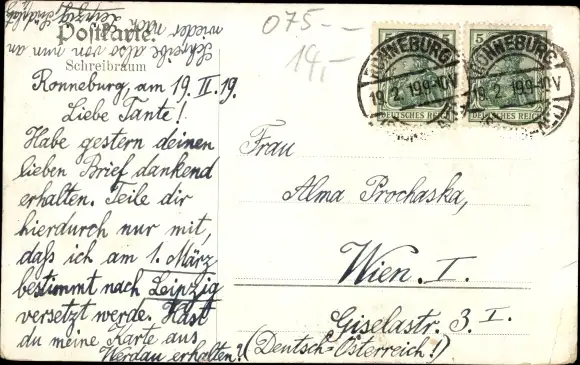 Postkarte.
Schreibraum
Ronneburg, am 19. II. 19.
Liebe Tante!
Habe gestern deinen
lieben Brief dankend
erhalten. Teile dir
hierdurch nur mit,
daß ich am 1. März
bestimmt nach Leipzig
versetzt werde. Hast
du meine Karte aus
Werdau erhalten?
Schreibe also von nun an
wieder nach
Leipzig
075--
14,-
RONNEBURG
19.2.19.9-10V
5 5
DEUTSCHES REICH
RONNEBURG
19.2.19.9-10V
5 5
DEUTSCHES REICH
Frau
Alma Prochaska,
Wien. I.
Giselastr. 3. I.
(Deutsch-Österreich!)